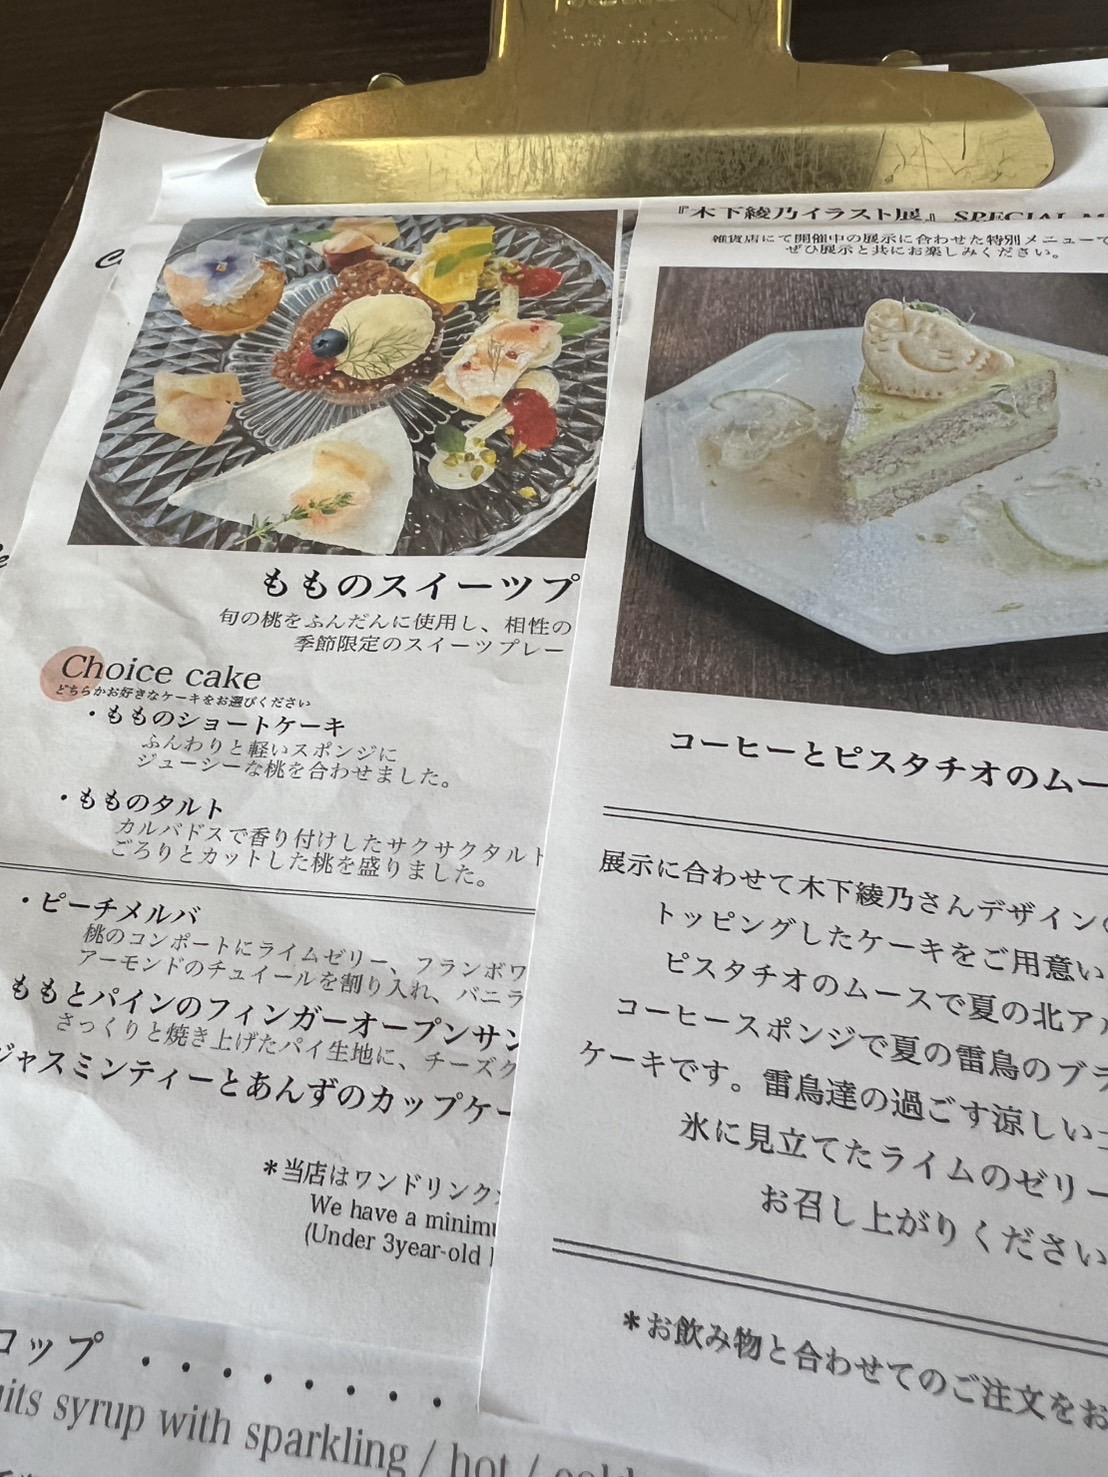 もものスイーツプ
旬の桃をふんだんに使用し、相性の
季節限定のスイーツプレー
Choice cake
どちらかお好きなケーキをお選びください
・もものショートケーキ
ふんわりと軽いスポンジに
ジューシーな桃を合わせました。
・もものタルト
カルバドスで香り付けしたサクサクタルト
ごろりとカットした桃を盛りました。
・ピーチメルバ
桃のコンポートにライムゼリー、フランボワ
アーモンドのチュイールを割り入れ、バニラ
ももとパインのフィンガーオープンサン
さっくりと焼き上げたパイ生地に、チーズク
ジャスミンティーとあんずのカップケー
＊当店はワンドリンク
We have a minimu
(Under 3year-old
コップ ・・・・・・・・
its syrup with sparkling / hot / cold
『木下綾乃イラスト展』 SPECIAL M
雑貨店にて開催中の展示に合わせた特別メニューで
ぜひ展示と共にお楽しみください。
コーヒーとピスタチオのムー
展示に合わせて木下綾乃さんデザインの
トッピングしたケーキをご用意い
ピスタチオのムースで夏の北アル
コーヒースポンジで夏の雷鳥のブラ
ケーキです。雷鳥達の過ごす涼しい
氷に見立てたライムのゼリー
お召し上がりください
＊お飲み物と合わせてのご注文をお